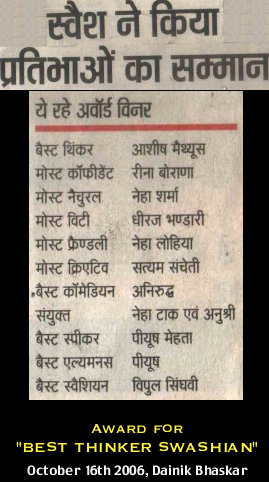 स्वैश ने किया
प्रतिभाओं का सम्मान
ये रहे अवॉर्ड विनर
बैस्ट थिंकर आशीष मैथ्यूस
मोस्ट कॉफीडेंट रीना बोराणा
मोस्ट नैचुरल नेहा शर्मा
मोस्ट विटी धीरज भण्डारी
मोस्ट फ्रैण्डली नेहा लोहिया
मोस्ट क्रिएटिव सत्यम संचेती
बैस्ट कॉमेडियन अनिरुद्ध
संयुक्त नेहा टाक एवं अनुश्री
बैस्ट स्पीकर पीयूष मेहता
बैस्ट एल्यमनस पीयूष
बैस्ट स्वैशियन विपुल सिंघवी
AWARD FOR
"BEST THINKER SWASHIAN"
October 16th 2006, Dainik Bhaskar